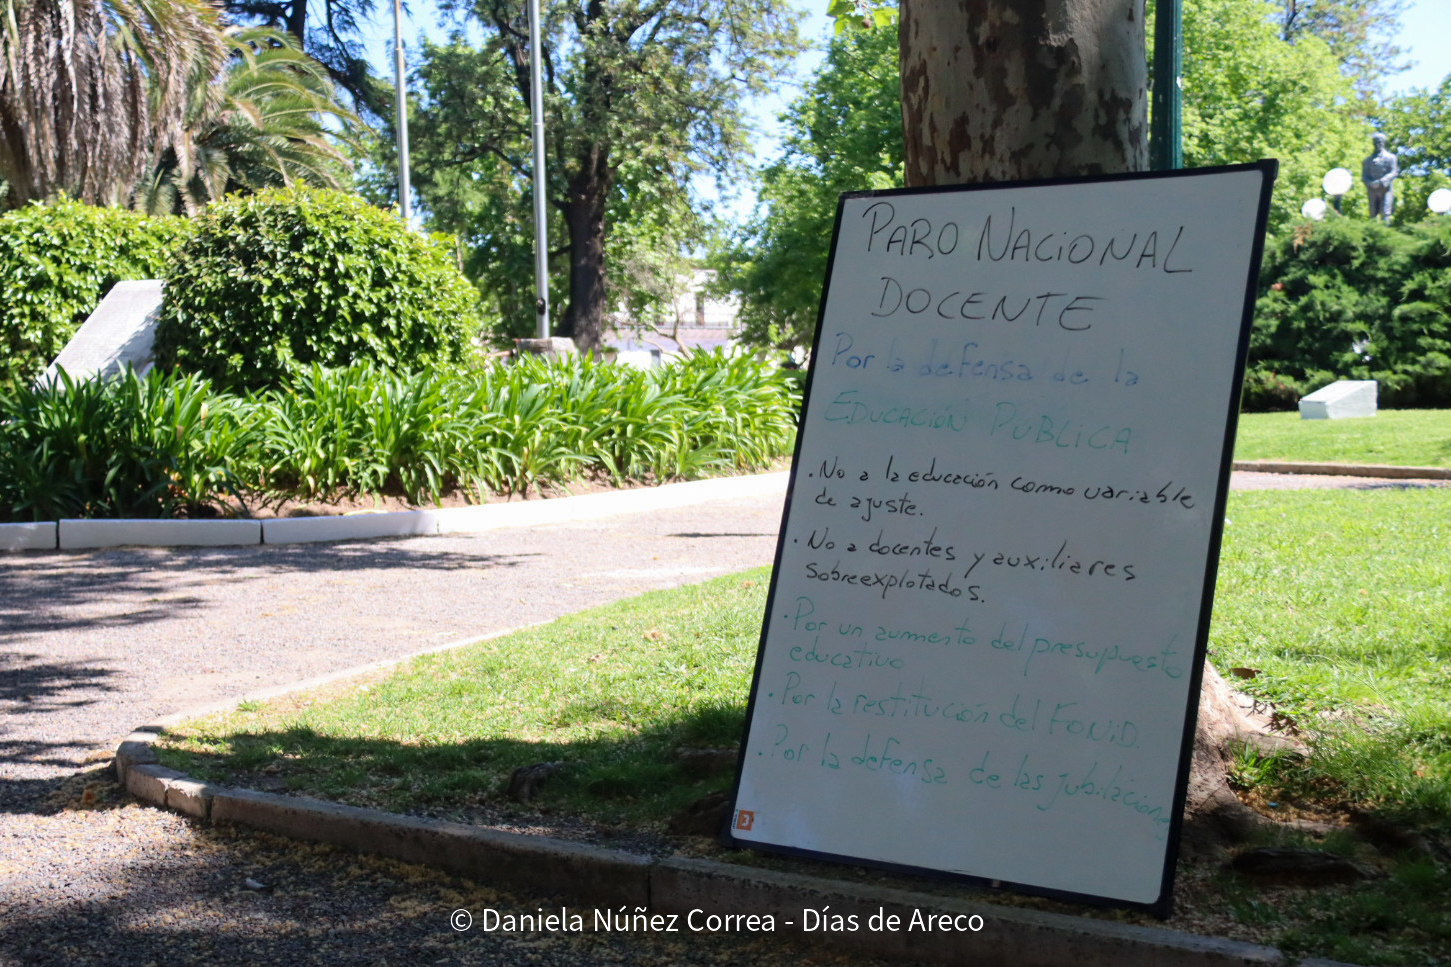 PARO NACIONAL
DOCENTE
Por la defensa de la
EDUCACIÓN PUBLICA
. No a la educación como variable
de ajuste.
. No a docentes y auxiliares
sobreexplotados.
. Por un aumento del presupuesto
educativo
. Por la restitución del FONID.
. Por la defensa de las jubilaciones
© Daniela Núñez Correa - Días de Areco